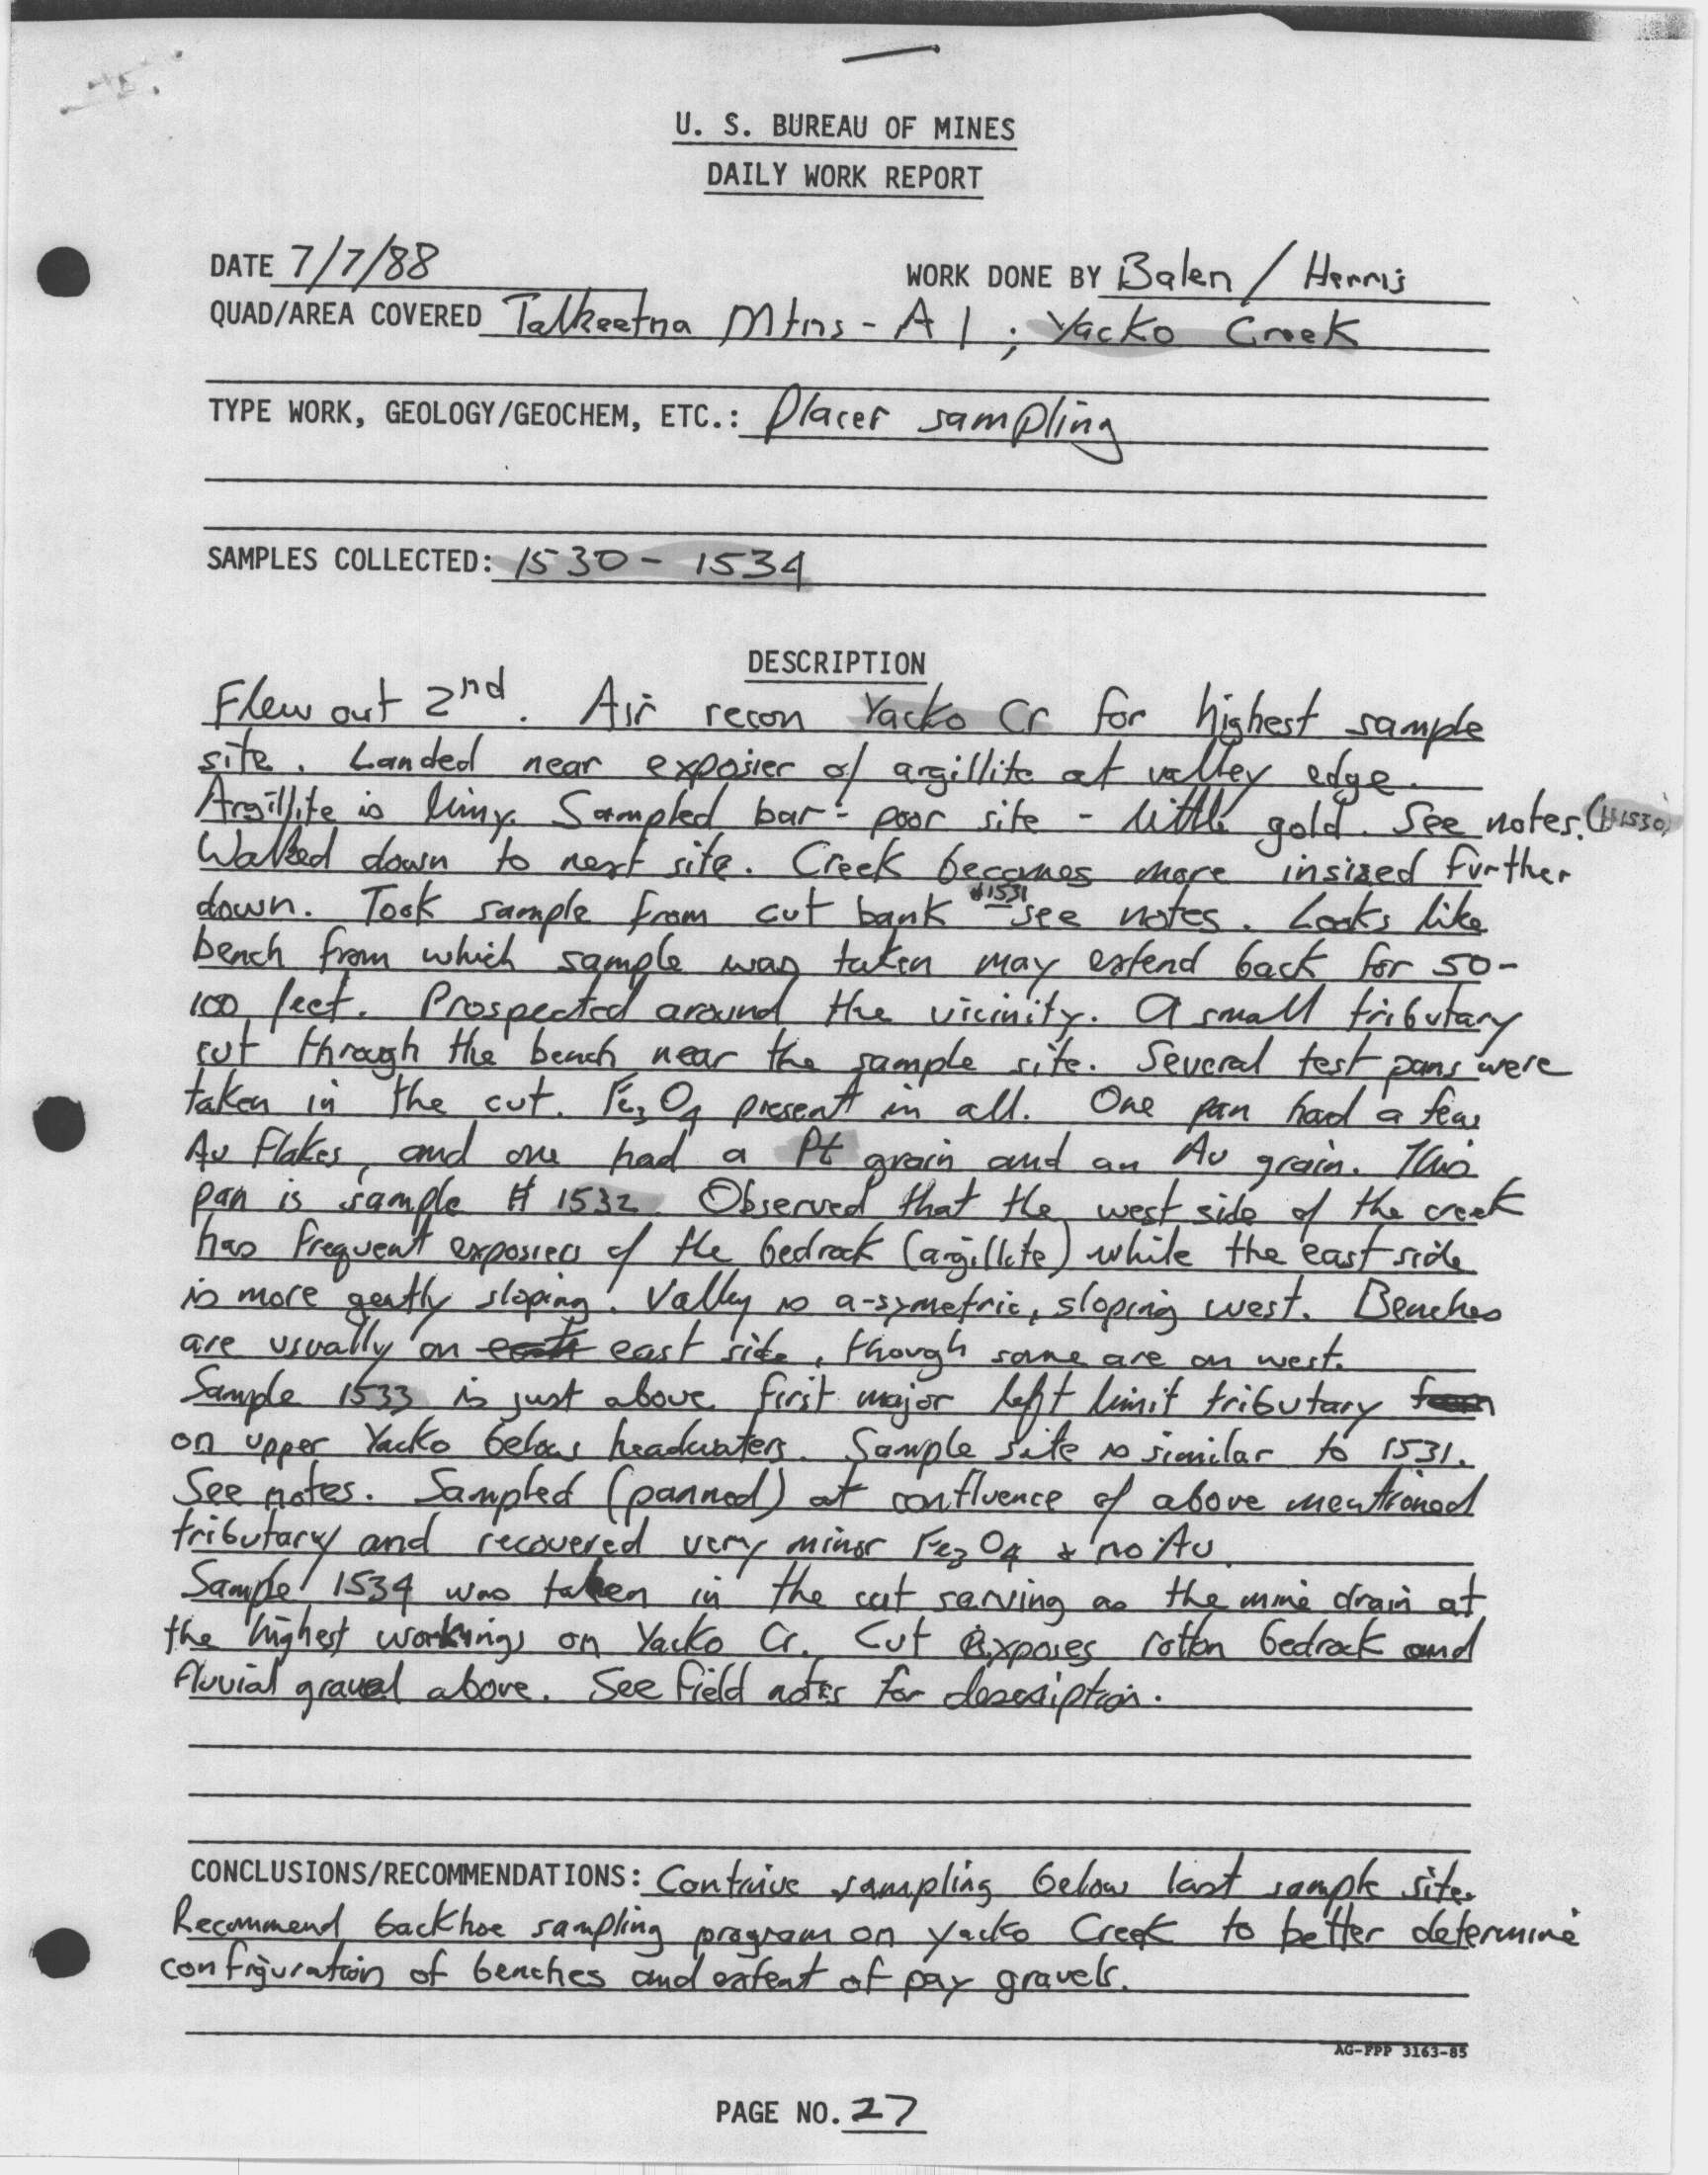 U. S. BUREAU OF MINES
DAILY WORK REPORT
DATE 7/7/88 WORK DONE BY Balen / Harris
QUAD/AREA COVERED Talkeetna Mtns - A1 ; Yacko Creek
TYPE WORK, GEOLOGY/GEOCHEM, ETC.: Placer sampling
SAMPLES COLLECTED: 1530 - 1534
DESCRIPTION
Flew out 2nd. Air recon Yacko Cr for highest sample
site. Landed near exposier of argillite at valley edge.
Argillite is limy. Sampled bar - poor site - little gold. See notes. (#1530)
Walked down to next site. Creek becomes more insized further
down. Took sample from cut bank #1531 see notes. Looks like
bench from which sample was taken may extend back for 50-
100 feet. Prospected around the vicinity. A small tributary
cut through the bench near the sample site. Several test pans were
taken in the cut. Fe3O4 present in all. One pan had a few
Au flakes, and one had a Pt grain and an Au grain. This
pan is sample # 1532. Observed that the west side of the creek
has frequent exposiers of the bedrock (argillite) while the east side
is more gently sloping. Valley is a-symetric, sloping west. Benches
are usually on east side, though some are on west.
Sample 1533 is just above first major left limit tributary
on upper Yacko below headwaters. Sample site is similar to 1531.
See notes. Sampled (panned) at confluence of above mentioned
tributary and recovered very minor Fe3O4 & no Au.
Sample 1534 was taken in the cut serving as the mine drain at
the highest workings on Yacko Cr. Cut exposes rotten bedrock and
fluvial gravel above. See field notes for description.
CONCLUSIONS/RECOMMENDATIONS: Continue sampling below last sample site.
Recommend backhoe sampling program on Yacko Creek to better determine
configuration of benches and extent of pay gravels.
AG-FPP 3163-85
PAGE NO. 27